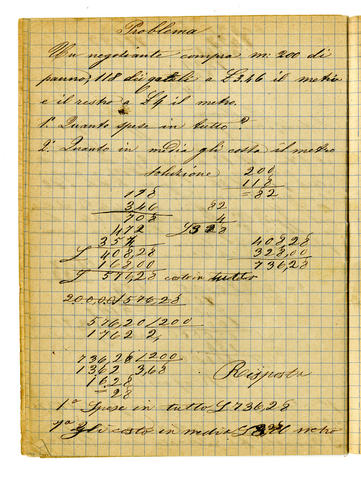 Problema
Un negoziante compra m: 200 di
panno, 118 dei quali a £ 3,46 il metro
e il resto a £ 4 il metro.
1º Quanto spese in tutto?
2º Quanto in media gli costa il metro
Soluzione 200
118
= 82
118
346 82
708 4
472 £ 328
354 408,28
£ 408,28 328,00
168,00 736,28
£ 576,28 costa in tutto
200,00/576,28
576,20/200
1762 2,
736,28/200
1362 3,68
1628
28
Risposta
1ª Spese in tutto £ 736,28
gli costò in media £ il metro